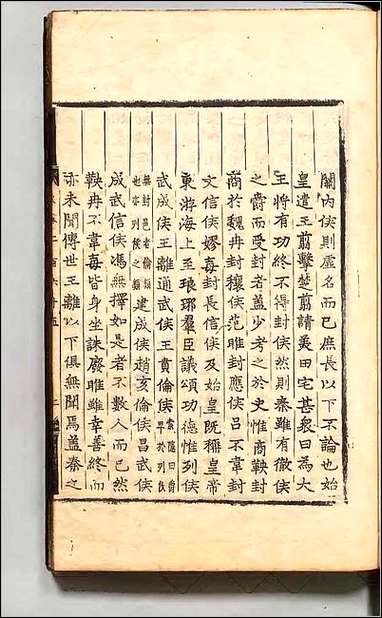 關内侯則虛名而已庶長以下不論也始
皇遣王翦擊楚翦請美田宅甚衆曰為大
王將有功終不得封侯然則秦雖有徹侯
之爵而受封者蓋少考之於史惟商鞅封
商於魏冉封穰侯范雎封應侯吕不韋封
文信侯嫪毐封長信侯及始皇既稱皇帝
東游海上至琅琊羣臣議頌功德惟列侯
武成侯王離通武侯王賁倫侯索隱曰爵卑於列侯
無封邑者倫類也亦列侯之類建成侯趙亥倫侯昌武侯
成武信侯馮無擇如是者不數人而已然
鞅冉不韋毐皆身坐誅廢雎雖幸善終而
亦未聞傳世王離以下俱無聞焉蓋秦之